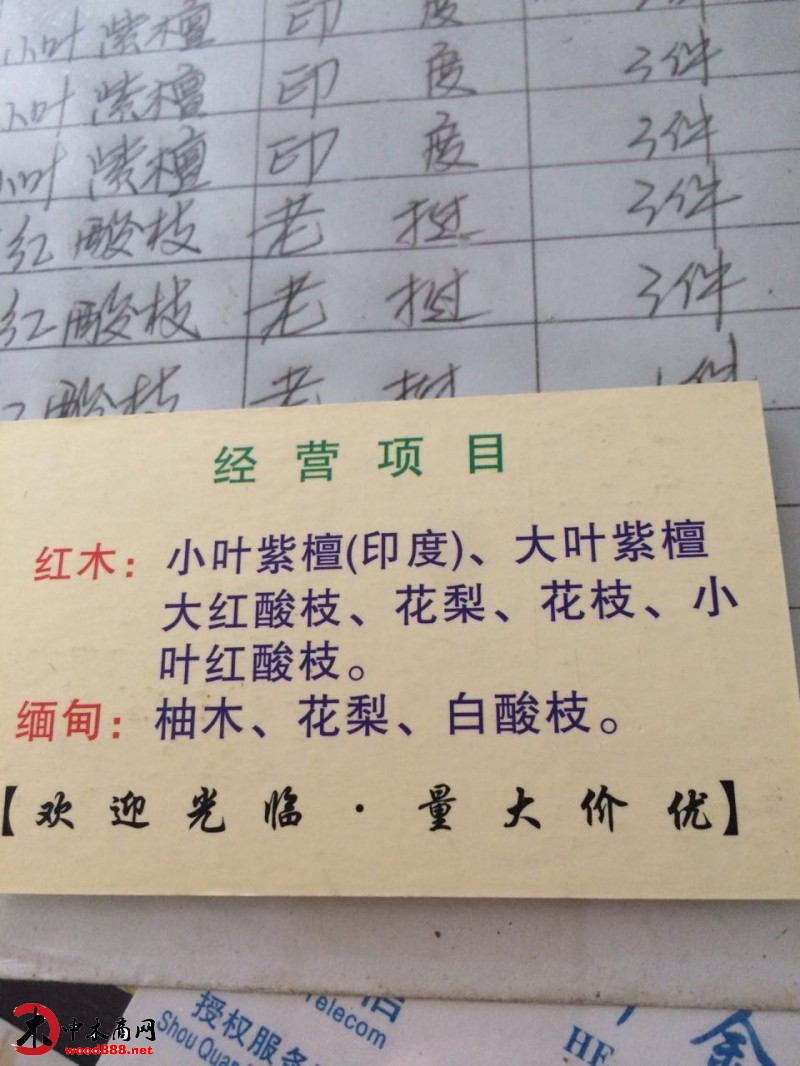 小叶紫檀 印度
小叶紫檀 印度 3件
小叶紫檀 印度 3件
红酸枝 老挝 3件
红酸枝 老挝 3件
红酸枝 老挝 件
经营项目
红木：小叶紫檀(印度)、大叶紫檀
大红酸枝、花梨、花枝、小
叶红酸枝。
缅甸：柚木、花梨、白酸枝。
【欢迎光临·量大价优】
Telecom
授权服务
Shou Quan
HF
中木商网
wood888.net